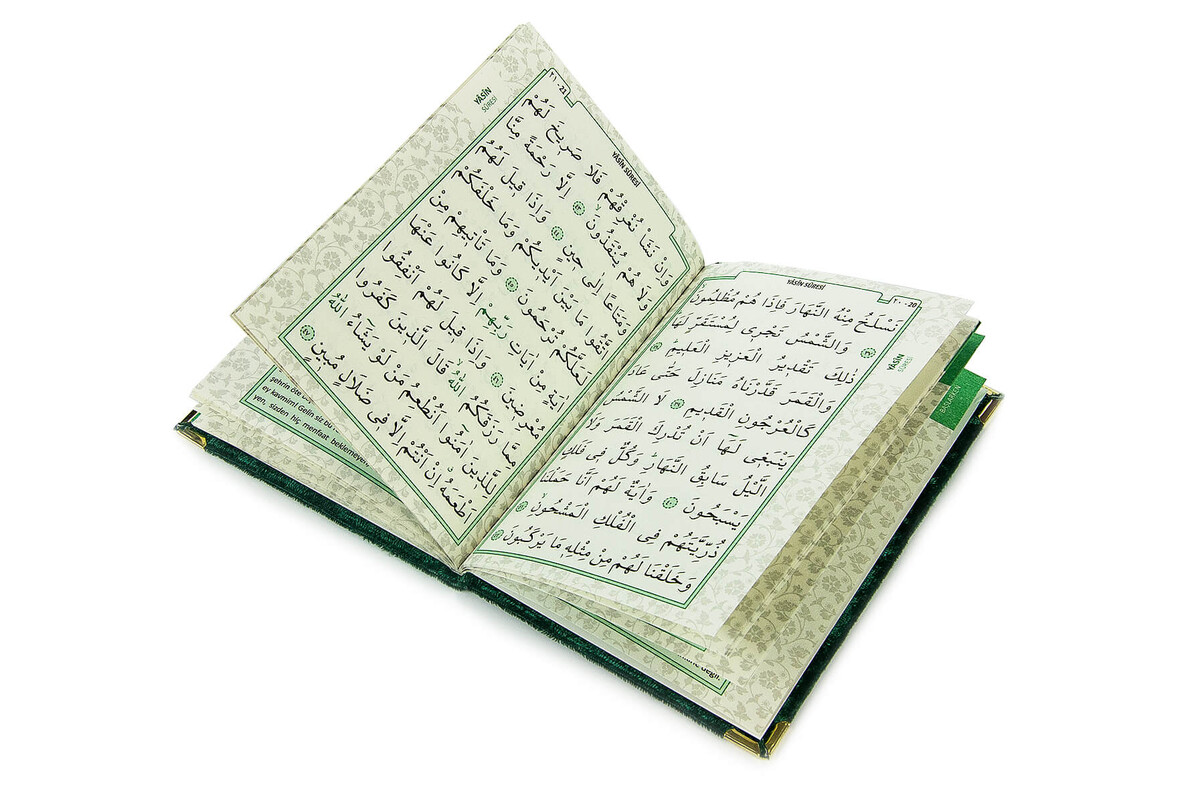 YÂSÎN SÛRESİ
٢٠ - 20
YÂSÎN
SÛRESİ
نَسْلَخُ مِنْهُ النَّهَارَ فَاِذَا هُمْ مُظْلِمُونَ
﴿٣٧﴾ وَالشَّمْسُ تَجْر۪ى لِمُسْتَقَرٍّ لَهَا
ذٰلِكَ تَقْد۪يرُ الْعَز۪يزِ الْعَل۪يمِ ﴿٣٨﴾
وَالْقَمَرَ قَدَّرْنَاهُ مَنَازِلَ حَتّٰى عَادَ
كَالْعُرْجُونِ الْقَد۪يمِ ﴿٣٩﴾ لَا الشَّمْسُ
يَنْبَغ۪ى لَهَٓا اَنْ تُدْرِكَ الْقَمَرَ وَلَا
الَّيْلُ سَابِقُ النَّهَارِ وَكُلٌّ ف۪ى فَلَكٍ
يَسْبَحُونَ ﴿٤٠﴾ وَاٰيَةٌ لَهُمْ اَنَّا حَمَلْنَا
ذُرِّيَّتَهُمْ فِى الْفُلْكِ الْمَشْحُونِ ﴿٤١﴾
وَخَلَقْنَا لَهُمْ مِنْ مِثْلِه۪ مَا يَرْكَبُونَ ﴿٤٢﴾
YÂSÎN SÛRESİ
٢١ - 21
YÂSÎN
SÛRESİ
وَاِنْ نَشَأْ نُغْرِقْهُمْ فَلَا صَر۪يخَ لَهُمْ
وَلَا هُمْ يُنْقَذُونَ ﴿٤٣﴾ اِلَّا رَحْمَةً مِنَّا
وَمَتَاعًا اِلٰى ح۪ينٍ ﴿٤٤﴾ وَاِذَا ق۪يلَ لَهُمُ
اتَّقُوا مَا بَيْنَ اَيْد۪يكُمْ وَمَا خَلْفَكُمْ
لَعَلَّكُمْ تُرْحَمُونَ ﴿٤٥﴾ وَمَا تَأْت۪يهِمْ مِنْ
اٰيَةٍ مِنْ اٰيَاتِ رَبِّهِمْ اِلَّا كَانُوا عَنْهَا
مُعْرِض۪ينَ ﴿٤٦﴾ وَاِذَا ق۪يلَ لَهُمْ اَنْفِقُوا
مِمَّا رَزَقَكُمُ اللّٰهُ قَالَ الَّذ۪ينَ كَفَرُوا
لِلَّذ۪ينَ اٰمَنُٓوا اَنُطْعِمُ مَنْ لَوْ يَشَٓاءُ اللّٰهُ
اَطْعَمَهُ اِنْ اَنْتُمْ اِلَّا ف۪ى ضَلَالٍ مُب۪ينٍ ﴿٤٧﴾
şehrin öte
ey kavmim! Gelin siz bu
yen, sizden hiç menfaat beklemeyen
BAĞLARKEN
değil.